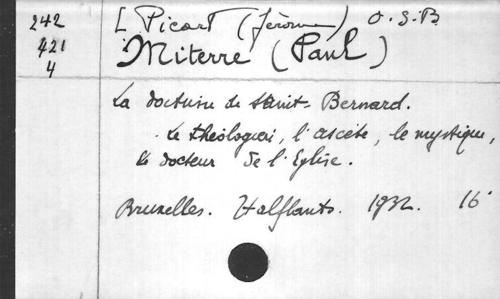 242
421
4
[ Picart (Jérome) O.S.B.
Miterre (Paul)
La doctrine de saint Bernard.
Le théologien, l'ascète, le mystique,
le docteur de l'Eglise.
Bruxelles. Halflants. 1932. 16°